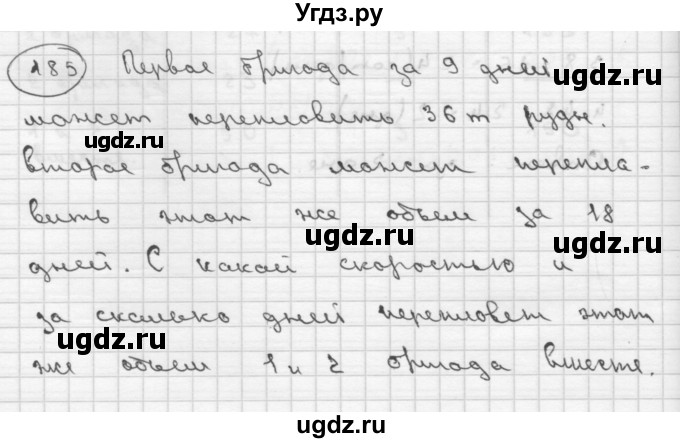 Угдз.ру
185 Первая бригада за 9 дней
может переплавить 36 т руды.
ugdz.ru ugdz.ru
вторая бригада может перепла-
вить этот же объем за 18
ugdz.ru ugdz.ru
дней. С какой скоростью и
за сколько дней переплавет этот
ugdz.ru ugdz.ru
же объем 1 и 2 бригада вместе.
ugdz.ru